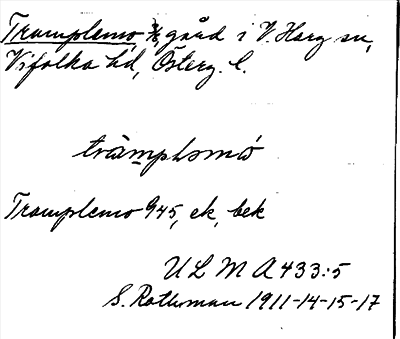 Tramplemo, ⅜ gård i V. Harg sn,
Vifolka hd, Österg. l.
trämplsmó
Tramplemo 945, ek, bek
ULMA 433:5
S. Rothman 1911-14-15-17